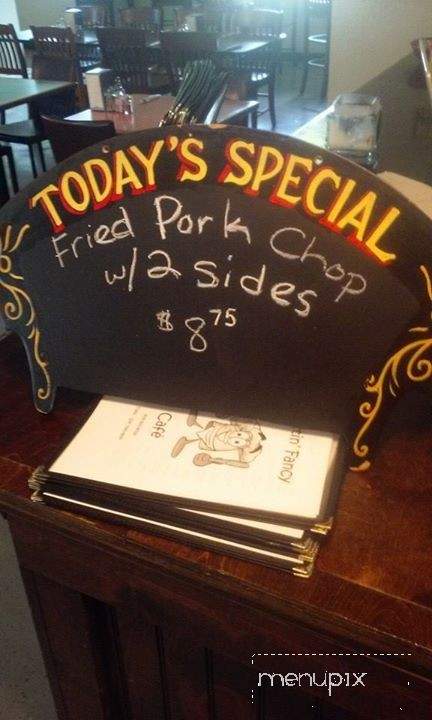 TODAY'S SPECIAL
Fried Pork Chop
w/2 sides
$8.75
Fancy
Café
menupix